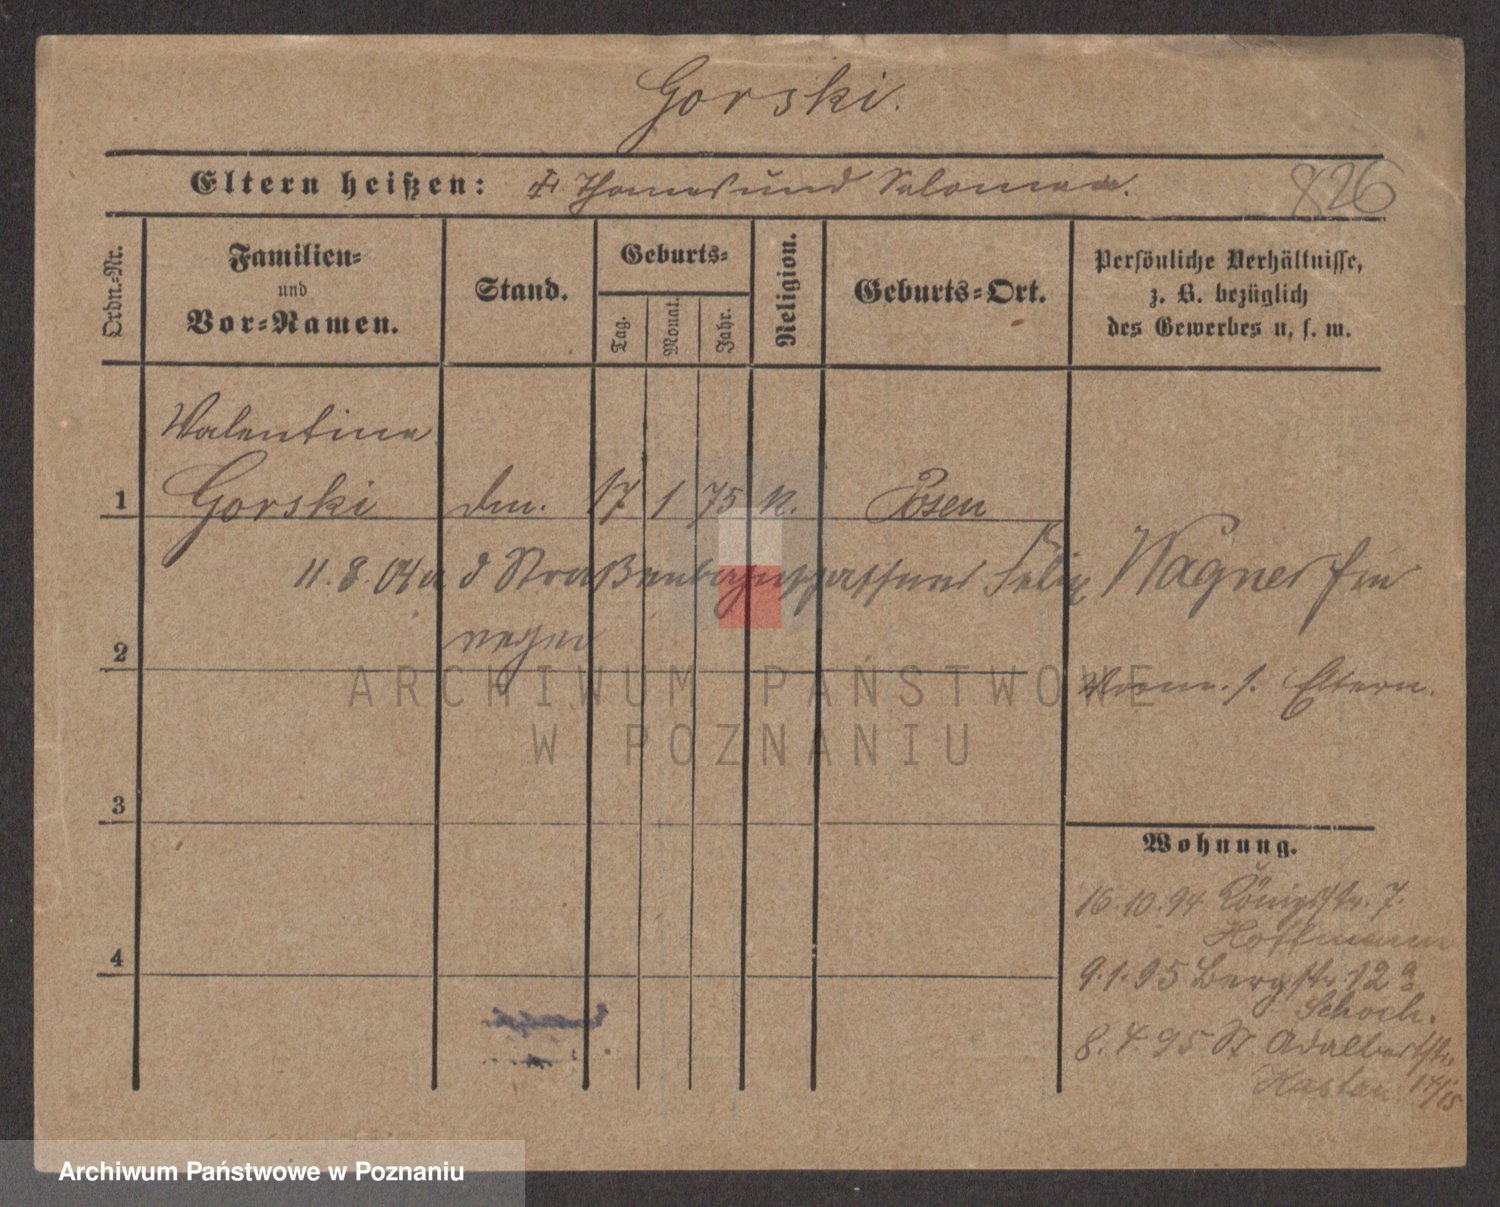 Gorski.
Eltern heißen: Thomas und Salomea.
826
Ordn.-Nr.
Familien-
und
Vor-Namen.
Stand.
Geburts-
Tag.
Monat.
Jahr.
Religion.
Geburts-Ort.
Persönliche Verhältnisse,
z. B. bezüglich
des Gewerbes u. s. w.
Valentine
1 Gorski 17 1 75 k. Posen
11.8.04 d Straßenbahnschaffner Felix Wagner
2
Eltern.
ARCHIWUM PAŃSTWOWE
W POZNANIU
3
Wohnung.
16.10.94 Königsstr. 7.
Hoffmann
4
9.1.95 Bergstr. 12a
Schoch.
8.4.95 St. Adalbertstr.
14/15
Archiwum Państwowe w Poznaniu